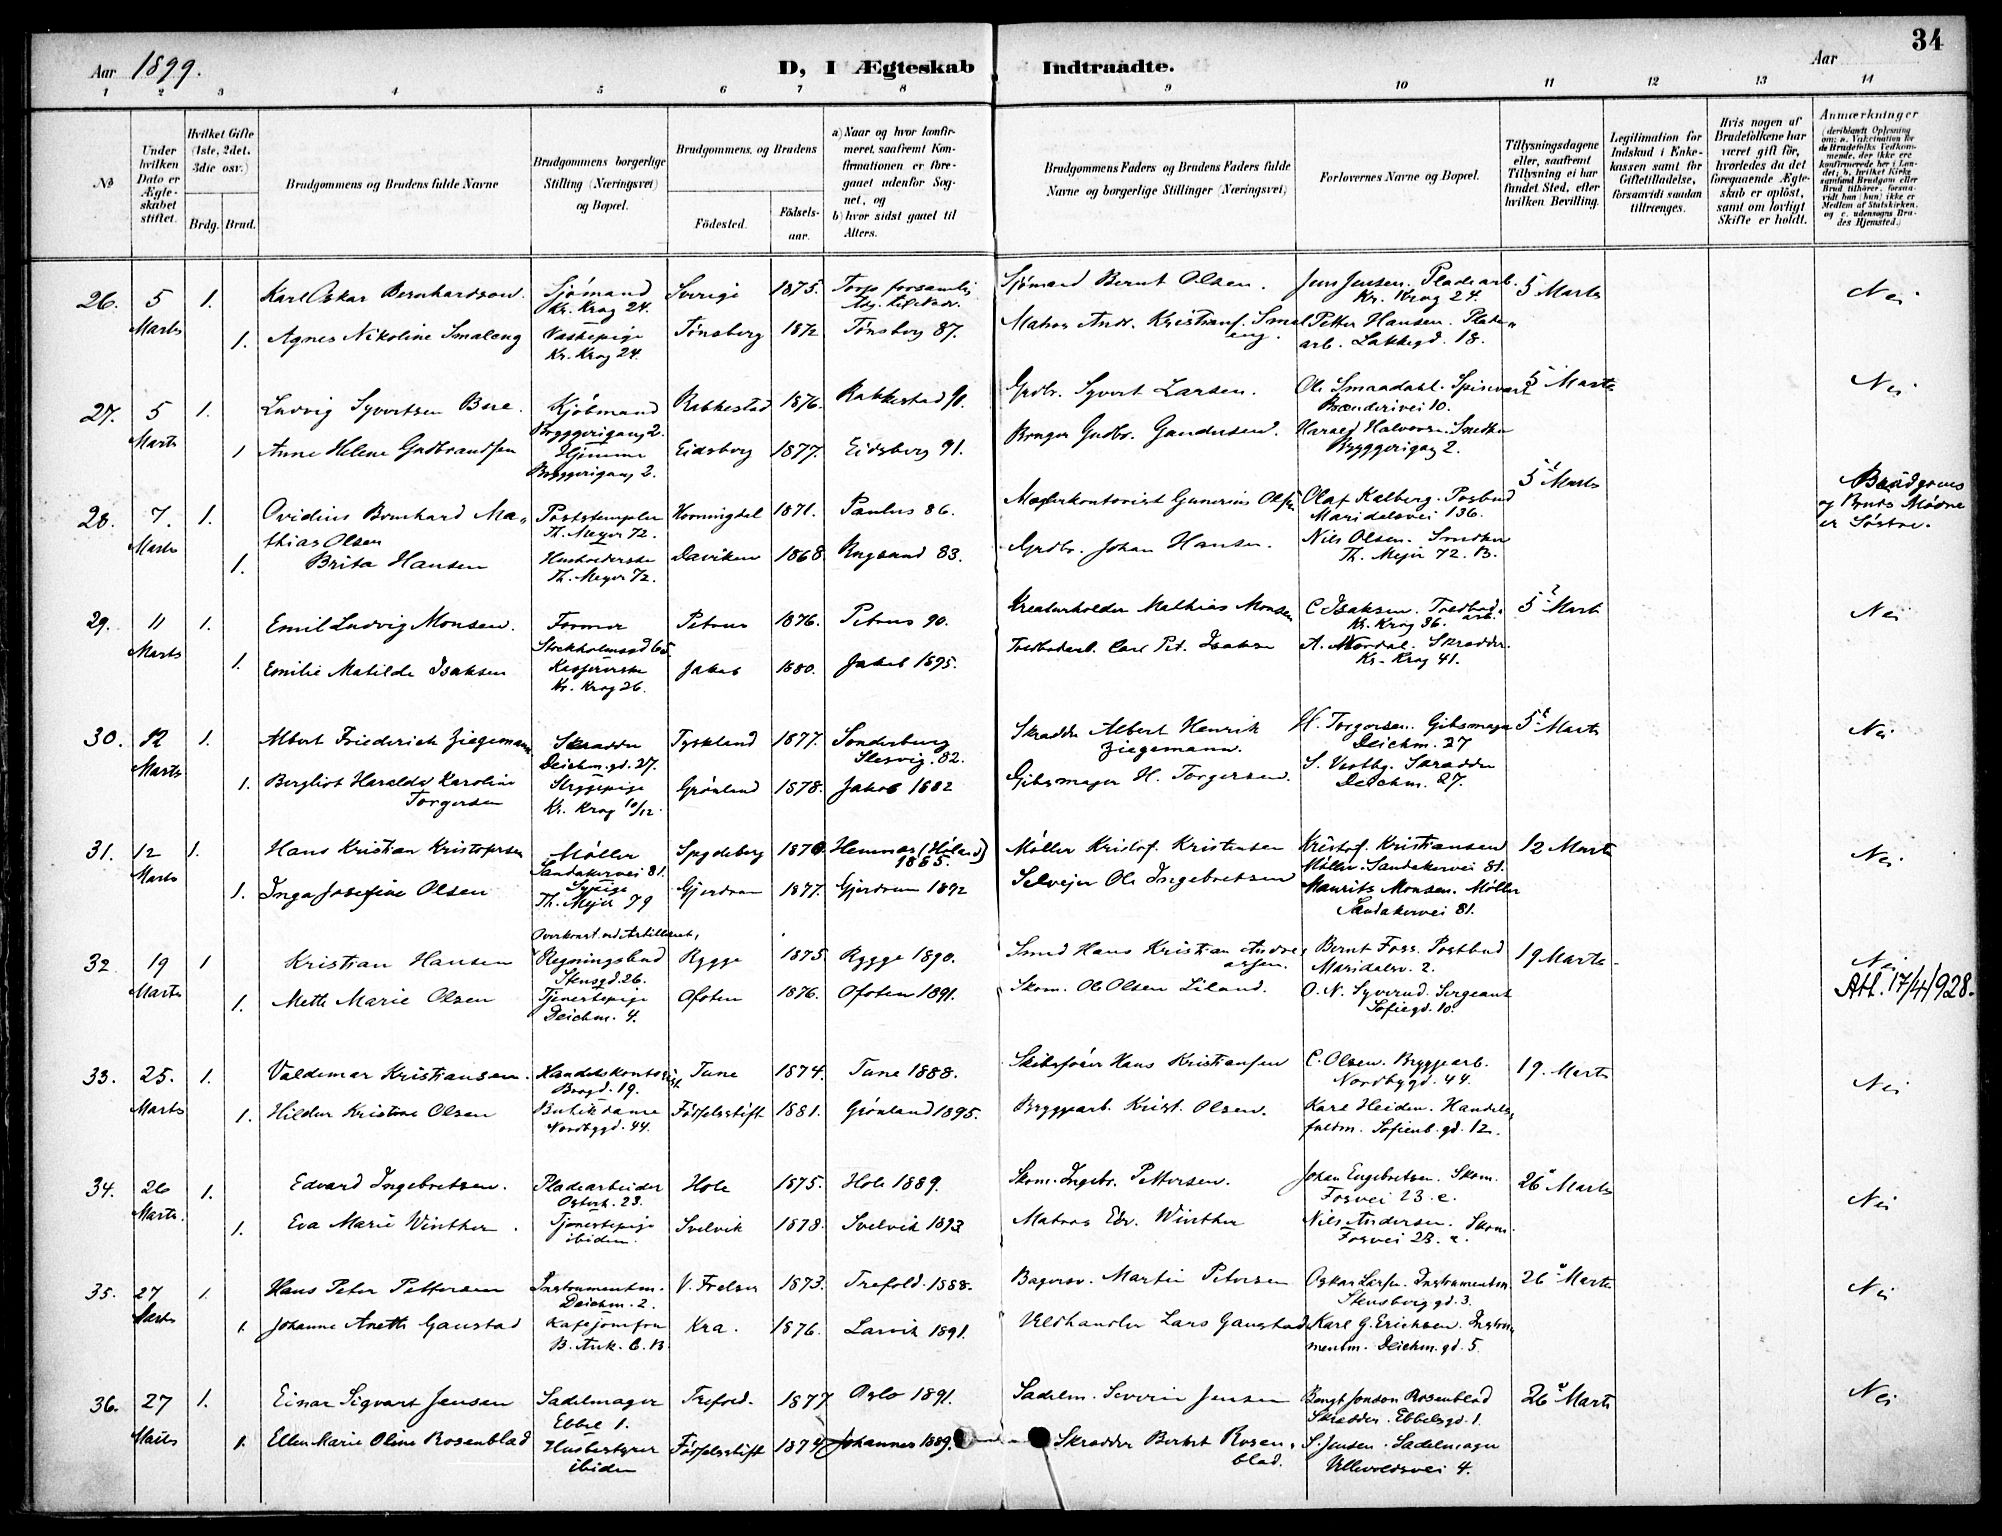 34
Aar 1899.
D, I Ægteskab Indtraadte.
Aar
1 2 3 4 5 6 7 8 9 10 11 12 13 14
No
Under hvilken Dato er Ægteskabet stiftet.
Hvilket Gifte (1ste, 2det, 3die osv.)
Brdg. Brud.
Brudgommens og Brudens fulde Navne
Brudgommens borgerlige Stilling (Næringsvei) og Bopæl.
Brudgommens og Brudens
Fødested.
Fødselsaar.
a) Naar og hvor konfirmeret, saafremt Konfirmationen er foregaaet udenfor Sognet, og
b) hvor sidst gaaet til Alters.
Brudgommens Faders og Brudens Faders fulde Navne og borgerlige Stillinger (Næringsvei)
Forlovernes Navne og Bopæl.
Tillysningsdagene eller, saafremt Tillysning ei har fundet Sted, efter hvilken Bevilling.
Legitimation for Indskud i Enkekassen samt for Giftetilladelse, forsaavidt saadan tiltrænges.
Hvis nogen af Brudefolkene har været gift før, hvorledes da det foregaaende Ægteskab er opløst, samt om lovligt Skifte er holdt.
Anmærkninger
26. 5 1. Karl Oskar Bernhardson. Sjømand Sverige 1875. Sjømand Bernt Olsen. Jens Jensen. Pladearb. 5 Marts Nei
Marts Kr. Krog 24. Kr. Krog 24.
1. Agnes Nikoline Smaleng Vaskepige Tønsberg 1872 Tønsberg 87. Petter Hansen. Plade-
Kr. Krog 24. arb. Lakkegd. 18.
27. 5 1. Ludvig Syvertsen Bue. Kjøbmand Rakkestad 1876. Rakkestad 91. Grdbr. Syvert Larsen. 5 Marts Nei
Marts Bryggerigang 2. Brænderivei 10.
1 Anne Helene Gudbrandsen Hjemme Eidsberg 1877. Eidsberg 91. Bruger Gudbr. Gundersen. Harald Halvorsen. Snedker
Bryggerigang 2. Bryggerigang 2.
28. 7. 1. Ovidius Bernhard Ma- Poststempler Horningdal 1871. Paulus 86. Olaf Kalberg. Postbud 5 Marts Brudgoms
Marts thias Olsen Th. Meyer 72. Maridalsvei 136. og Bruds Mødre
1. Brita Hansen Husholderske Daviken 1868 Rugsund 83. Grdbr. Johan Hansen. Nils Olsen. Snedker er Søstre.
Th. Meyer 72. Th. Mejer 72. B.
29. 11 1. Emil Ludvig Monsen. Former Petrus 1876. Petrus 90. Kreaturholder Mathias Monsen C. Isaksen. 5 Marts Nei
Marts Kr. Krog 26.
1. Emilie Matilde Isaksen Jakob 1880. Jakob 1895. Carl Pet. Isaksen A. Mordal. Skrædder.
Kr. Krog 26. Kr. Krog 41.
30. 12 1. Albert Friederich Ziegemann Skrædder Tyskland 1877. Sonderburg Skrædder Albert Henrik H. Torgersen. Gibsmager 5 Marts Nei
Marts Deichm.gd. 27. Slesvig. 82. Ziegemann. Deichm. 27
1. Bergliot Haralda Karoline Strygepige Grønland 1878. Jakob 1882 Gibsmager H. Torgersen. S. Vestbg. Skrædder
Torgersen Kr. Krog 10/12. Deichm. 27.
31. 12 1. Hans Kristian Kristofersen Møller Spydeberg 1870 Hemnæs (Høland) Møller Kristof. Kristensen Kristof. Kristiansen 12 Marts Nei
Marts Sandakervei 81. 1885. Møller. Sandakervei 81.
1. Inga Josefine Olsen Sypige Gjerdrum 1877. Gjerdrum 1892 Selvejer Ole Ingebretsen Maurits Monsen. Møller
Th. Mejer 79 Sandakervei 81.
32 19 1 Kristian Hansen Rygge 1875 Rygge 1890. Smed Hans Kristian Andre- Bernt Foss. Postbud 19 Marts. Nei
Marts Stensgd. 26. assen. Maridalsv. 2. Att. 17/4 1928.
1. Mette Marie Olsen Tjenestepige Ofoten 1876. Ofoten 1891. Skom. Ole Olsen Liland. O. N. Syverud. Sergeant
Deichm. 4. Sofiegd. 10.
33. 25. 1. Valdemar Kristiansen. Handelskontorist Tune 1874. Tune 1888. Skibsfører Hans Kristiansen C. Olsen. Bryggearb. 19. Marts Nei
Marts Brogd. 19. Nordbygd. 44.
1. Hildur Kristine Olsen Butikdame Fødselsstift 1881. Grønland 1895. Bryggearb. Krist. Olsen. Karl Heiden. Handels-
Nordbygd. 44. fuldm. Sofienb.gd. 12.
34. 26 1. Edvard Ingebretsen. Pladearbeider Hole 1875. Hole 1889. Skom. Ingebr. Pettersen. Johan Engebretsen. Skom. 26 Marts Nei
Marts. Fosvei 23. c.
1. Eva Marie Winther. Tjenestepige Svelvik 1878. Svelvik 1893 Matros Edv. Winther Nils Andersen. Skom.
ibidem. Fosvei 23. c.
35. 27 1. Hans Peter Pettersen Instrumentm. V. Frelser 1873. Trefold. 1888. Martin Petersen Oskar Larsen. Instrumentm. 26 Marts Nei
Marts Deichm. 2. Stensberggd. 3.
1. Johanne Anette Gaustad Kafejomfru Kra. 1876. Larvik 1891. Vildhandler Lars Gaustad Karl G. Erichsen. Instru-
B. Ank. 6. B. mentm. Deichm.gd. 5.
36. 27 1. Einar Sigvart Jensen Sadelmager Trefold. 1877 Oslo 1891. Sadelm. Severin Jensen Bengt Jonson Rosenblad 26 Marts Nei
Marts Ebbel 1. Skrædder. Ebbelsgd. 1.
1. Ellen Marie Oline Rosenblad Husbestyrer Fødselsstift 1874 Johannes 1889. Skrædder Bernt Rosen- S. Jensen. Sadelmager
ibidem blad. Ullevoldsvei 4.